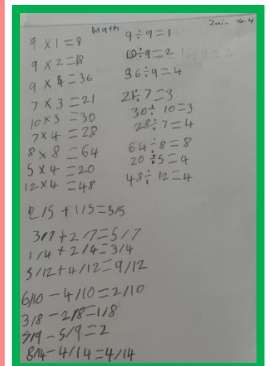 Math
2min Yr.4
9 × 1 = 9
9 × 2 = 18
9 × 4 = 36
7 × 3 = 21
10 × 3 = 30
7 × 4 = 28
8 × 8 = 64
5 × 4 = 20
12 × 4 = 48
9 ÷ 9 = 1
18 ÷ 9 = 2
36 ÷ 9 = 4
21 ÷ 7 = 3
30 ÷ 10 = 3
28 ÷ 7 = 4
64 ÷ 8 = 8
20 ÷ 5 = 4
48 ÷ 12 = 4
2/5 + 1/5 = 3/5
3/7 + 2/7 = 5/7
1/4 + 2/4 = 3/4
5/12 + 4/12 = 9/12
6/10 - 4/10 = 2/10
3/8 - 2/8 = 1/8
7/9 - 5/9 = 2
8/14 - 4/14 = 4/14